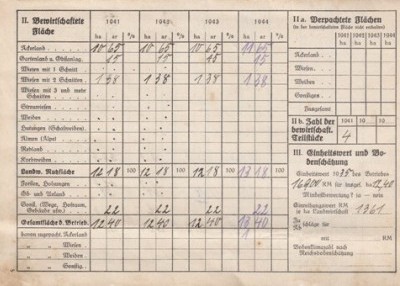 II. Bewirtschaftete Fläche 1941 1942 1943 1944
ha ar % ha ar % ha ar % ha ar %
Ackerland 10 65 10 65 10 65 11 65
Gartenland u. Obstanlag. 15 15 15 15
Wiesen mit 1 Schnitt
Wiesen mit 2 Schnitten 1 38 1 38 1 38 1 38
Wiesen mit 3 und mehr Schnitten
Streuwiesen
Weiden
Hutungen (Schafweiden)
Almen (Alpen)
Rebland
Korbweiden
Landw. Nutzfläche 12 18 100 12 18 100 12 18 100 13 18 100
Forsten, Holzungen
Öd- und Unland
Sonst. (Wege, Hofraum, Gebäude usw.) 22 22 22 22
Gesamtfläche d. Betrieb. 12 40 12 40 12 40 13 40
davon zugepacht. Ackerland 1
" " Wiesen
" " Weiden
" " Sonstig.
II a. Verpachtete Flächen
(in der bewirtschafteten Fläche nicht enthalten)
1941 1942 1943 1944
ha ha ha ha
Ackerland
Wiesen
Weiden
Sonstiges
Insgesamt
II b. Zahl der bewirtschaft. Teilstücke
1941 19
4
III. Einheitswert und Bodenschätzung
Einheitswert 1935 des Betriebes
RM für insges. 12,40
Mindestbewertung? ja — nein
RM
in der Landwirtschaft 1361
mit RM
Bodenklimazahl nach Reichsbodenschätzung